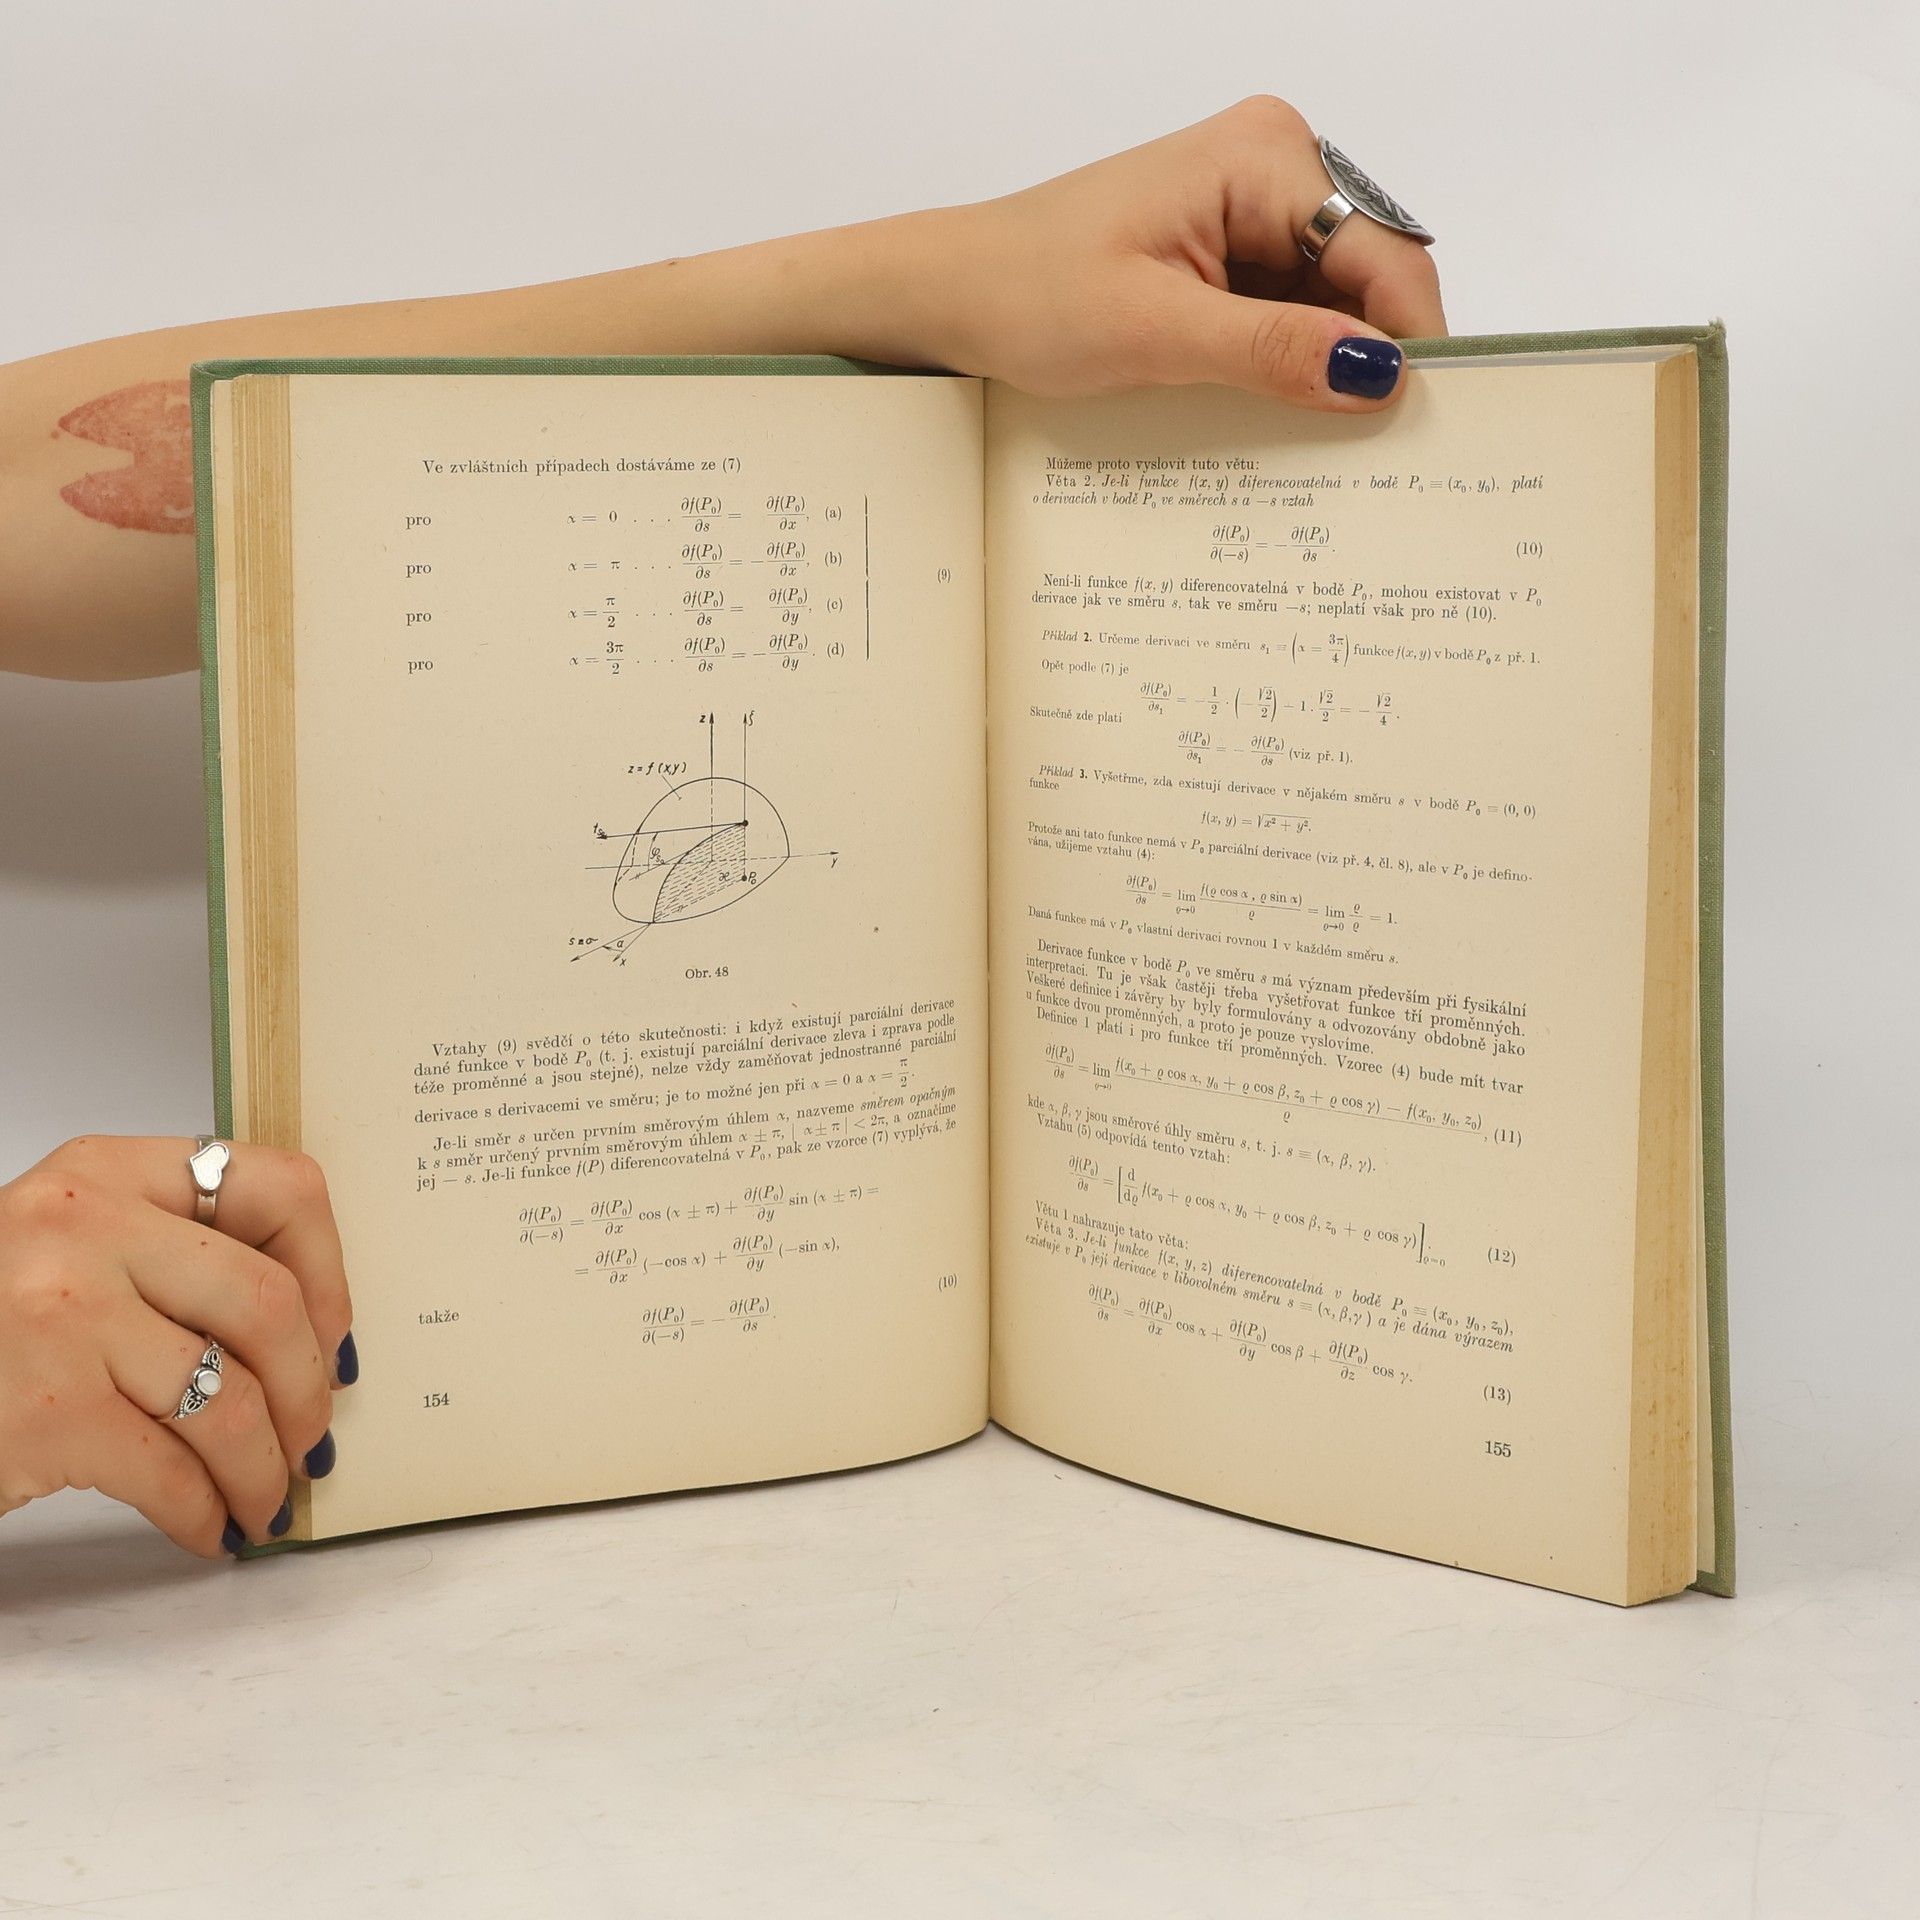 Ve zvláštních případech dostáváme ze (7)
pro α = 0 . . . ∂f(P₀)/∂s = ∂f(P₀)/∂x, (a)
pro α = π . . . ∂f(P₀)/∂s = −∂f(P₀)/∂x, (b)
(9)
pro α = π/2 . . . ∂f(P₀)/∂s = ∂f(P₀)/∂y, (c)
pro α = 3π/2 . . . ∂f(P₀)/∂s = −∂f(P₀)/∂y. (d)
z ξ
z = f (x,y)
y
P₀
s ≡ σ α
x
Obr. 48
Vztahy (9) svědčí o této skutečnosti: i když existují parciální derivace
dané funkce v bodě P₀ (t. j. existují parciální derivace zleva i zprava podle
téže proměnné a jsou stejné), nelze vždy zaměňovat jednostranné parciální
derivace s derivacemi ve směru; je to možné jen při α = 0 a α = π/2.
Je-li směr s určen prvním směrovým úhlem α, nazveme směrem opačným
k s směr určený prvním směrovým úhlem α ± π, | α ± π | < 2π, a označíme
jej — s. Je-li funkce f(P) diferencovatelná v P₀, pak ze vzorce (7) vyplývá, že
∂f(P₀)/∂(−s) = ∂f(P₀)/∂x cos (α ± π) + ∂f(P₀)/∂y sin (α ± π) =
= ∂f(P₀)/∂x (−cos α) + ∂f(P₀)/∂y (−sin α),
(10)
takže ∂f(P₀)/∂(−s) = −∂f(P₀)/∂s.
154
Můžeme proto vyslovit tuto větu:
Věta 2. Je-li funkce f(x, y) diferencovatelná v bodě P₀ ≡ (x₀, y₀), platí
o derivacích v bodě P₀ ve směrech s a −s vztah
∂f(P₀)/∂(−s) = −∂f(P₀)/∂s. (10)
Není-li funkce f(x, y) diferencovatelná v bodě P₀, mohou existovat v P₀
derivace jak ve směru s, tak ve směru −s; neplatí však pro ně (10).
Příklad 2. Určeme derivaci ve směru s₁ ≡ (α = 3π/4) funkce f(x, y) v bodě P₀ z př. 1.
Opět podle (7) je
∂f(P₀)/∂s₁ = −1/2 · (−√2/2) − 1 . √2/2 = −√2/4.
Skutečně zde platí
∂f(P₀)/∂s₁ = −∂f(P₀)/∂s (viz př. 1).
Příklad 3. Vyšetřme, zda existují derivace v nějakém směru s v bodě P₀ ≡ (0, 0)
funkce
f(x, y) = √(x² + y²).
Protože ani tato funkce nemá v P₀ parciální derivace (viz př. 4, čl. 8), ale v P₀ je defino-
vána, užijeme vztahu (4):
∂f(P₀)/∂s = lim ϱ→0 f(ϱ cos α, ϱ sin α)/ϱ = lim ϱ→0 ϱ/ϱ = 1.
Daná funkce má v P₀ vlastní derivaci rovnou 1 v každém směru s.
Derivace funkce v bodě P₀ ve směru s má význam především při fysikální
interpretaci. Tu je však častěji třeba vyšetřovat funkce tří proměnných.
Veškeré definice i závěry by byly formulovány a odvozovány obdobně jako
u funkce dvou proměnných, a proto je pouze vyslovíme.
Definice 1 platí i pro funkce tří proměnných. Vzorec (4) bude mít tvar
∂f(P₀)/∂s = lim ϱ→0 f(x₀ + ϱ cos α, y₀ + ϱ cos β, z₀ + ϱ cos γ) − f(x₀, y₀, z₀)/ϱ, (11)
kde α, β, γ jsou směrové úhly směru s, t. j. s ≡ (α, β, γ).
Vztahu (5) odpovídá tento vztah:
∂f(P₀)/∂s = [d/dϱ f(x₀ + ϱ cos α, y₀ + ϱ cos β, z₀ + ϱ cos γ)]ϱ=0. (12)
Větu 1 nahrazuje tato věta:
Věta 3. Je-li funkce f(x, y, z) diferencovatelná v bodě P₀ ≡ (x₀, y₀, z₀),
existuje v P₀ její derivace v libovolném směru s ≡ (α, β, γ) a je dána výrazem
∂f(P₀)/∂s = ∂f(P₀)/∂x cos α + ∂f(P₀)/∂y cos β + ∂f(P₀)/∂z cos γ. (13)
155